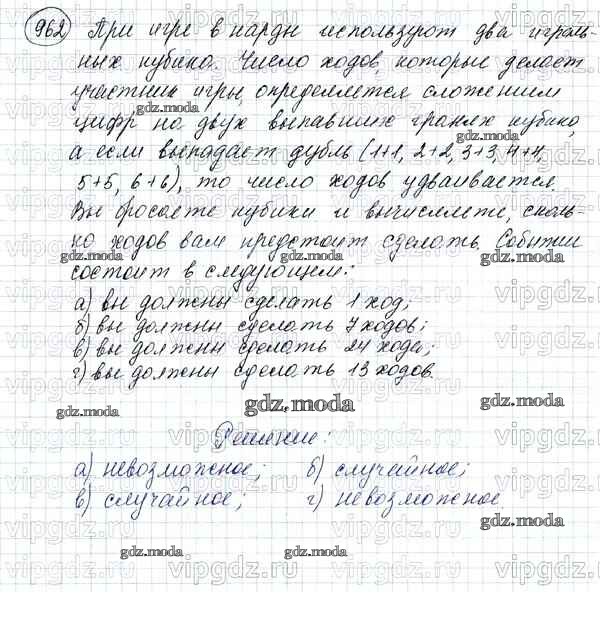 962 При игре в нарды используют два играль-
ных кубика. Число ходов, которые делает
участник игры, определяется сложением
gdz.moda gdz.moda
цифр на двух выпавших гранях кубика,
а если выпадает дубль (1+1, 2+2, 3+3, 4+4,
5+5, 6+6), то число ходов удваивается.
Вы бросаете кубики и вычисляете, сколь-
ко ходов вам предстоит сделать. Событие
gdz.moda gdz.moda gdz.moda
состоит в следующем:
а) вы должны сделать 1 ход;
б) вы должны сделать 7 ходов;
в) вы должны сделать 24 хода;
г) вы должны сделать 13 ходов.
gdz.moda gdz.moda gdz.moda
Решение:
а) невозможное; б) случайное;
в) случайное; г) невозможное
gdz.moda
gdz.moda gdz.moda
vipgdz.ru vipgdz.ru vipgdz.ru